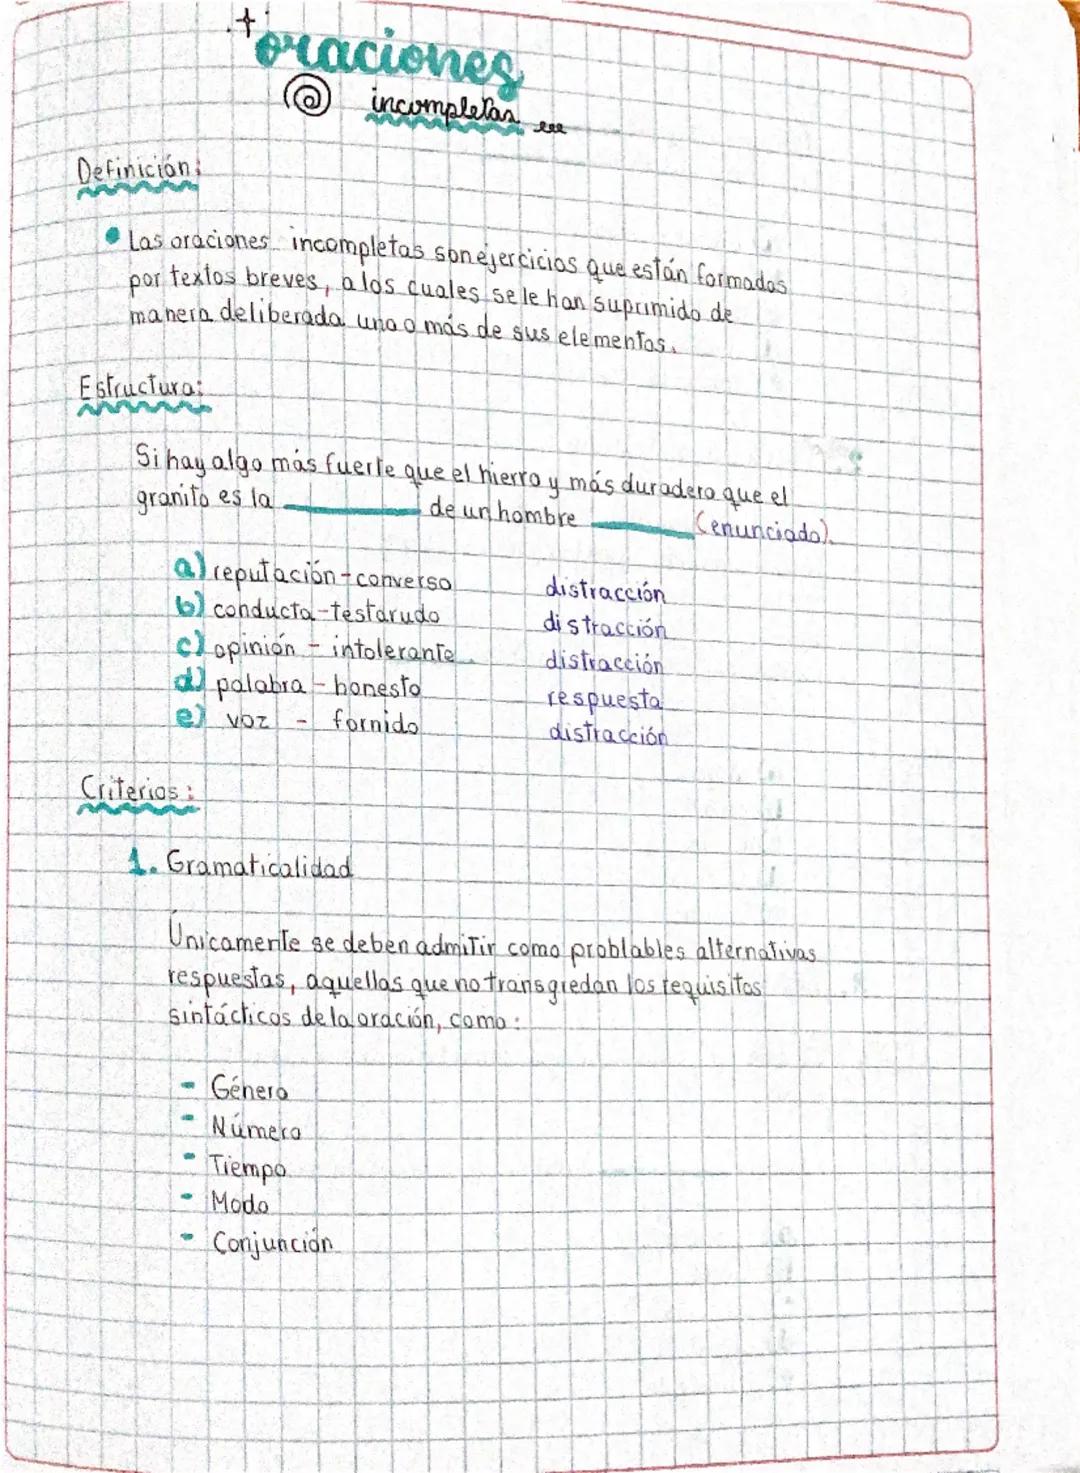 oraciones
incompletas
Definición:
Las oraciones incompletas son ejercicios que están formados
por textos breves, a los cuales se le han suprimido de
manera deliberada uno o más de sus elementos.
Estructura:
Si hay algo más fuerte que el hierro y más duradero que el
granito es la ______ de un hombre ______ (enunciado).
a) reputación - converso distracción
b) conducta - testarudo distracción
c) opinión - intolerante. distracción
d) palabra - honesto respuesta
e) voz - fornido distracción
Criterios:
1. Gramaticalidad
Únicamente se deben admitir como problables alternativas
respuestas, aquellas que no transgredan los requisitos
sintácticos de la oración, como:
- Género
- Número
- Tiempo
- Modo
- Conjunción